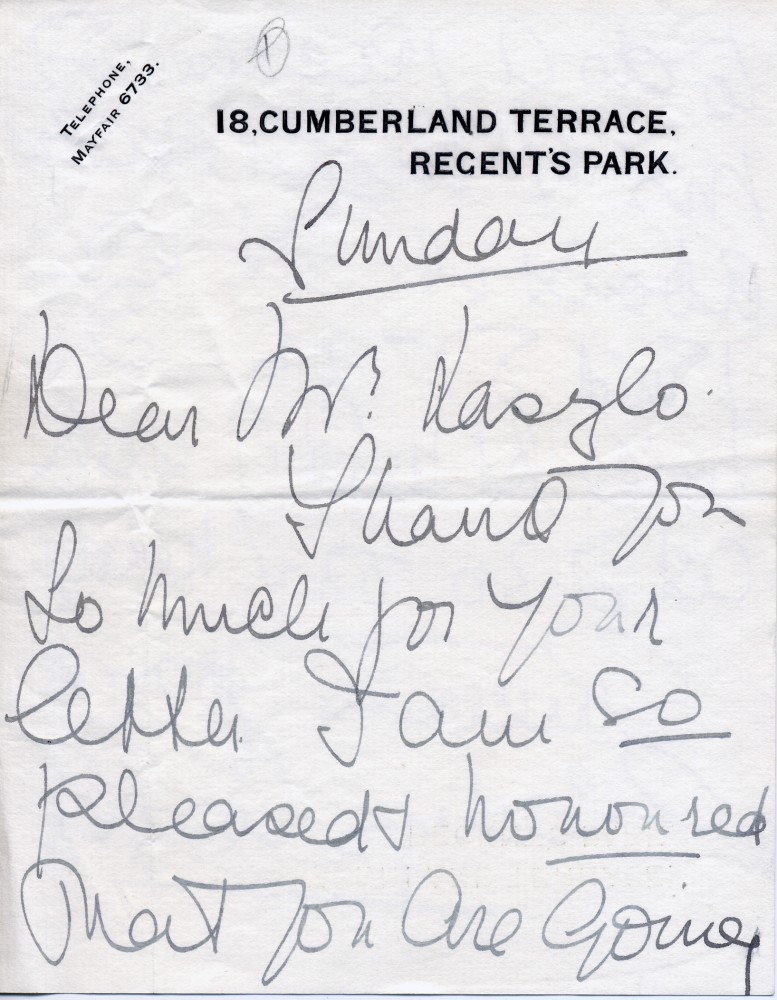 1
TELEPHONE,
MAYFAIR 6733.
18, CUMBERLAND TERRACE,
REGENT'S PARK.
Sunday
Dear Mr. Laszlo.
Thank you
so much for your
letter I am so
pleased & honoured
that you are going